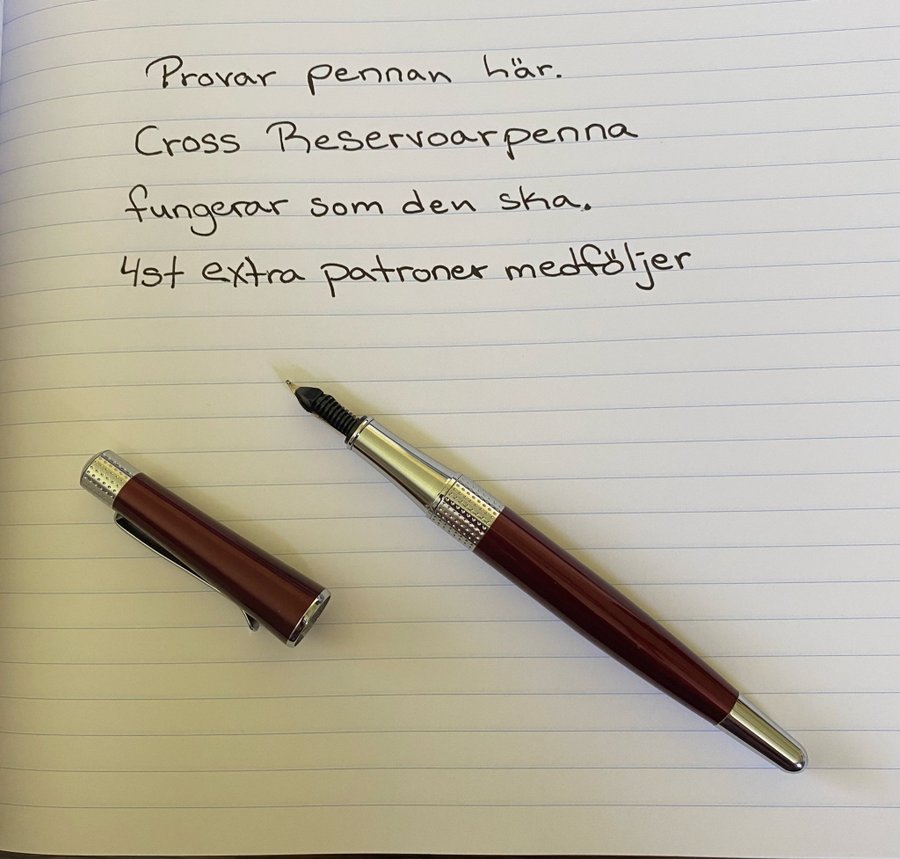 Provar pennan här.
Cross Reservoarpenna
fungerar som den ska.
4st extra patroner medföljer